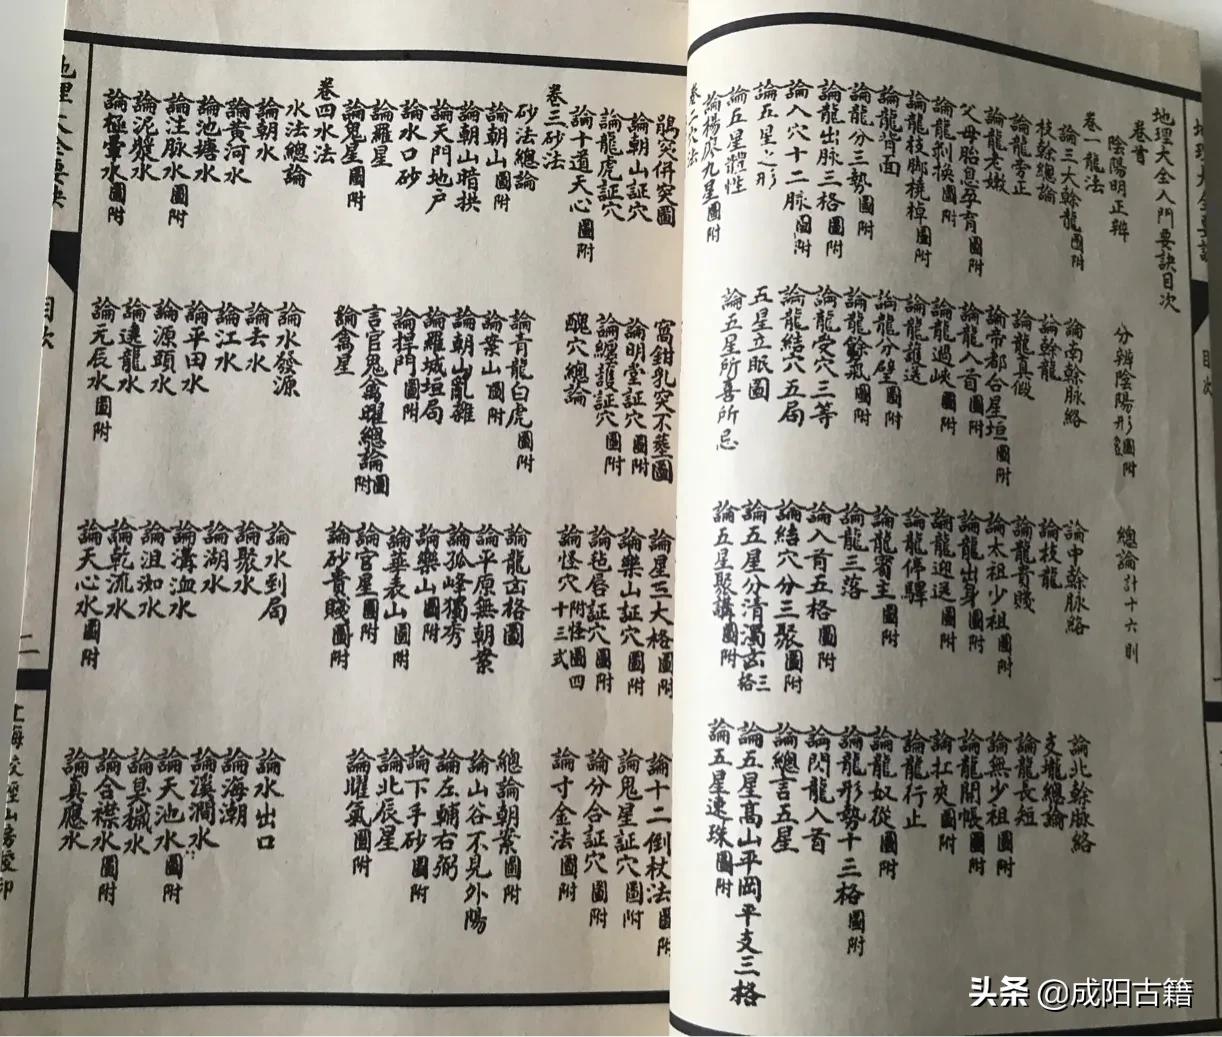 地理大全要訣
目次
地理大全入門要訣目次
卷首
陰陽明正辨 分辨陰陽形象圖附 總論計十六則
卷一龍法
論三大幹龍圖附 論南幹脉絡 論中幹脉絡 論北幹脉絡
枝幹總論 論幹龍 論枝龍 支壠總論
論龍旁正 論龍真假 論龍貴賤 論龍長短
論龍老嫩 論帝都合星垣圖附 論太祖少祖圖附 論無少祖圖附
父母胎息孕育圖附 論龍入首圖附 論龍出身圖附 論龍開帳圖附
論龍剝換圖附 論龍過峽圖附 論龍迎送圖附 論扛夾圖附
論龍枝脚橈棹圖附 論龍護送 論龍停驛 論龍行止
論龍背面 論龍分劈圖附 論龍賓主圖附 論龍奴從圖附
論龍分三勢圖附 論龍餘氣圖附 論龍三落 論龍形勢十三格圖附
論龍出脉三格圖附 論龍受穴三等 論入首五格圖附 論閃龍入首
論入穴十二脉圖附 論龍結穴五局 論結穴分三聚圖附 論總言五星
論五星之形 五星立眠圖 論五星分清濁凶三格 論五星高山平岡平支三格
論五星體性 論五星所喜所忌 論五星聚講圖附 論五星連珠圖附
論楊廖九星圖附
卷二穴法
鶻突併突圖 窩鉗乳突不塟圖 論星三大格圖附 論十二倒杖法圖附
論朝山証穴 論明堂証穴圖附 論樂山証穴圖附 論鬼星証穴圖附
論龍虎証穴 論纏護証穴圖附 論毡唇証穴圖附 論分合証穴圖附
論十道天心圖附 醜穴總論 論怪穴十三式附怪圖四 論寸金法圖附
卷三砂法
砂法總論 論青龍白虎圖附 論龍虎凶格圖 總論朝案圖附
論朝山圖附 論案山圖附 論平原無朝案 論山谷不見外陽
論朝山暗拱 論朝山亂雜 論孤峰獨秀 論左輔右弼
論天門地户 論羅城垣局 論樂山圖附 論下手砂圖附
論水口砂 論捍門圖附 論華表山圖附 論北辰星
論羅星 言官鬼禽曜總論圖附 論官星圖附 論曜氣圖附
論鬼星圖附 論禽星 論砂貴賤圖附
卷四水法
水法總論 論水發源 論水到局 論水出口
論朝水 論去水 論聚水 論海潮
論黃河水 論江水 論湖水 論溪澗水
論池塘水 論平田水 論溝洫水 論天池水圖附
論注脉水圖附 論源頭水 論沮洳水 論臭穢水
論泥漿水 論遶龍水 論乾流水 論合襟水圖附
論極暈水圖附 論元辰水圖附 論天心水圖附 論真應水
目次
二
上海校經山房發印
头条 @成阳古籍